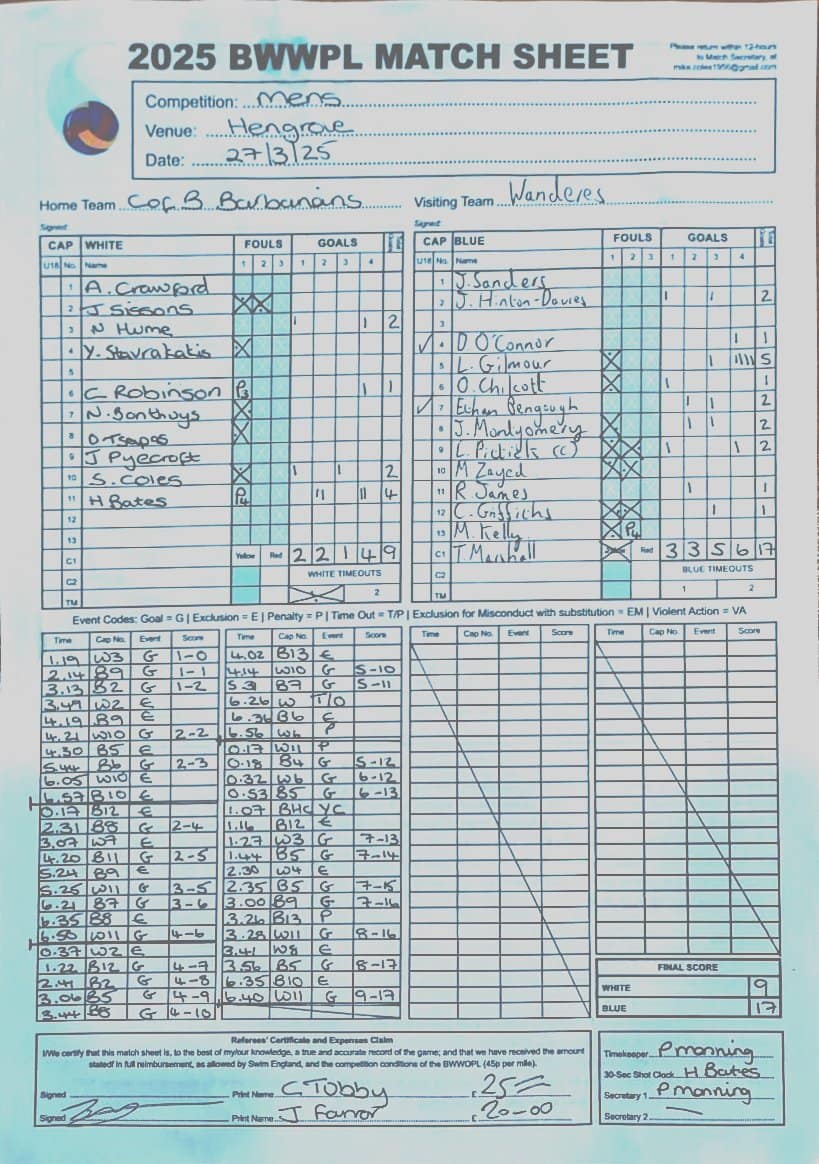 2025 BWWPL MATCH SHEET
Please return within 12-hours
to Match Secretary, at
mike.coles1956@gmail.com
Competition: Mens
Venue: Hengrove
Date: 27/3/25
Home Team C of B Barbarians
Visiting Team Wanderes
Signed
Signed
CAP WHITE FOULS GOALS
U18 No. Name 1 2 3 1 2 3 4
1 A. Crawford
2 J Sissons X X
3 N Hume 1 1 2
4 Y. Stavrakakis X
5
6 C Robinson P3 1 1
7 N. Bonthuys X
8 D Tsapas X
9 J Pyecroft
10 S. Coles X 1 1 2
11 H Bates P4 11 11 4
12
13
C1 Yellow Red 2 2 1 4 9
C2 WHITE TIMEOUTS
TM 1 2
CAP BLUE FOULS GOALS
U18 No. Name 1 2 3 1 2 3 4
1 J. Sanders
2 J. Hinton-Davies 1 1 2
3
✓ 4 D O'Connor 1 1
5 L. Gilmour X 1 1111 5
6 O. Chilcott X 1 1
✓ 7 Ethan Bengough 1 1 2
8 J. Montgomery X 1 1 2
9 L. (c) X X 1 1 2
10 M Zayed X X
11 R James 1 1
12 C. Griffiths X X 1 1
13 M. Kelly X P4
C1 T Marshall Yellow Red 3 3 5 6 17
C2 BLUE TIMEOUTS
TM 1 2
Event Codes: Goal = G | Exclusion = E | Penalty = P | Time Out = T/P | Exclusion for Misconduct with substitution = EM | Violent Action = VA
Time Cap No. Event Score
1.19 W3 G 1-0
2.14 B9 G 1-1
3.13 B2 G 1-2
3.49 W2 E
4.19 B9 E
4.21 W10 G 2-2
4.30 B5 E
5.44 B6 G 2-3
6.05 W10 E
6.57 B10 E
0.17 B12 E
2.31 B8 G 2-4
3.07 W7 E
4.20 B11 G 2-5
5.24 B9 E
5.25 W11 G 3-5
6.21 B7 G 3-6
6.35 B8 E
6.50 W11 G 4-6
0.37 W2 E
1.22 B12 G 4-7
2.41 B2 G 4-8
3.06 B5 G 4-9
3.44 B8 G 4-10
Time Cap No. Event Score
4.02 B13 E
4.14 W10 G 5-10
5.31 B7 G 5-11
6.26 W T/O
6.36 B6 E
6.56 W6 P
0.17 W11 P
0.18 B4 G 5-12
0.32 W6 G 6-12
0.53 B5 G 6-13
1.07 BHC YC
1.16 B12 E
1.27 W3 G 7-13
1.44 B5 G 7-14
2.30 W4 E
2.35 B5 G 7-15
3.00 B9 G 7-16
3.26 B13 P
3.28 W11 G 8-16
3.41 W8 E
3.56 B5 G 8-17
6.35 B10 E
6.40 W11 G 9-17
Time Cap No. Event Score
Time Cap No. Event Score
FINAL SCORE
WHITE 9
BLUE 17
Referees' Certificate and Expenses Claim
I/We certify that this match sheet is, to the best of my/our knowledge, a true and accurate record of the game; and that we have received the amount
stated/ in full reimbursement, as allowed by Swim England, and the competition conditions of the BWWOPL (45p per mile).
Signed Print Name C Tobby £ 25
Signed Print Name J Farror £ 20-00
Timekeeper P Manning
30-Sec Shot Clock H Bates
Secretary 1 P Manning
Secretary 2 —